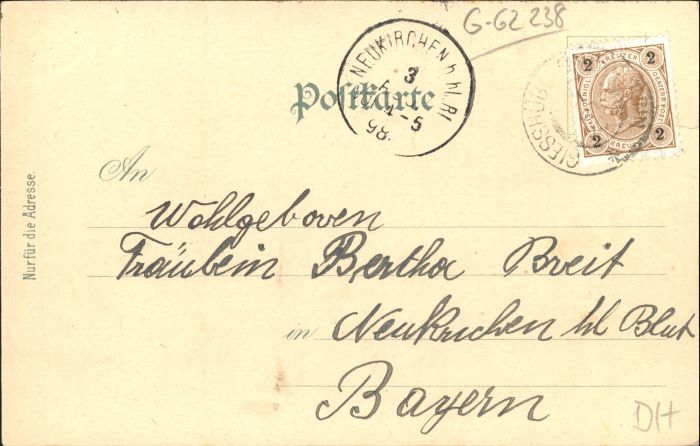 G-G2 238
NEUKIRCHEN b. hl. Bl.
3
4-5
98.
Postkarte
GIESSHÜB
2 KREUZER 2
2 KREUZER 2
An
Nur für die Adresse.
Wohlgeboren
Fräulein Bertha Breit
in Neukirchen hl Blut
Bayern
DH